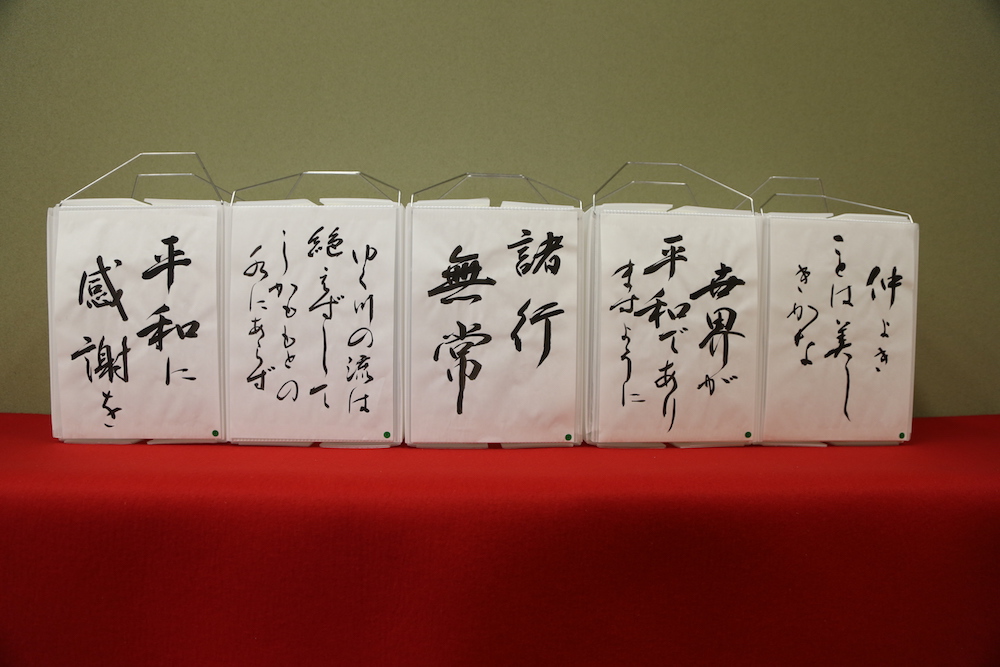 仲よき
ことは美し
きかな
世界が
平和であり
ますように
諸行
無常
ゆく川の流は
絶えずして
しかももとの
水にあらず
平和に
感謝を